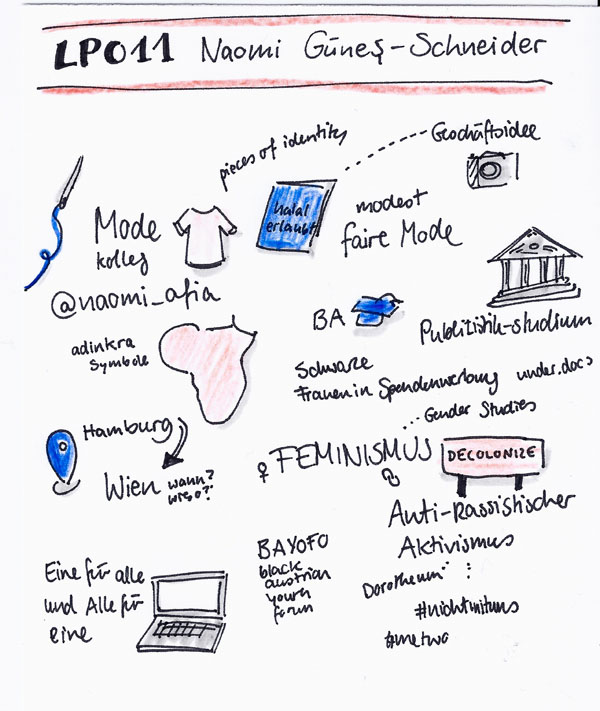 LP011 Naomi Güneş-Schneider
pieces of identity
Geschäftsidee
halal
erlaubt
modest
faire Mode
Mode
kolleg
@naomi_afia
BA
Publizistik-studium
adinkra
symbole
Schwarze
Frauen in Spendenwerbung
under.docs
... Gender Studies
Hamburg
Wien wann?
wieso?!
FEMINISMUS
DECOLONIZE
Anti-Rassistischer
Aktivismus
Dorotheum
#nichtmituns
#metwo
BAYOFO
black
austrian
youth
forum
Eine für alle
und Alle für
eine